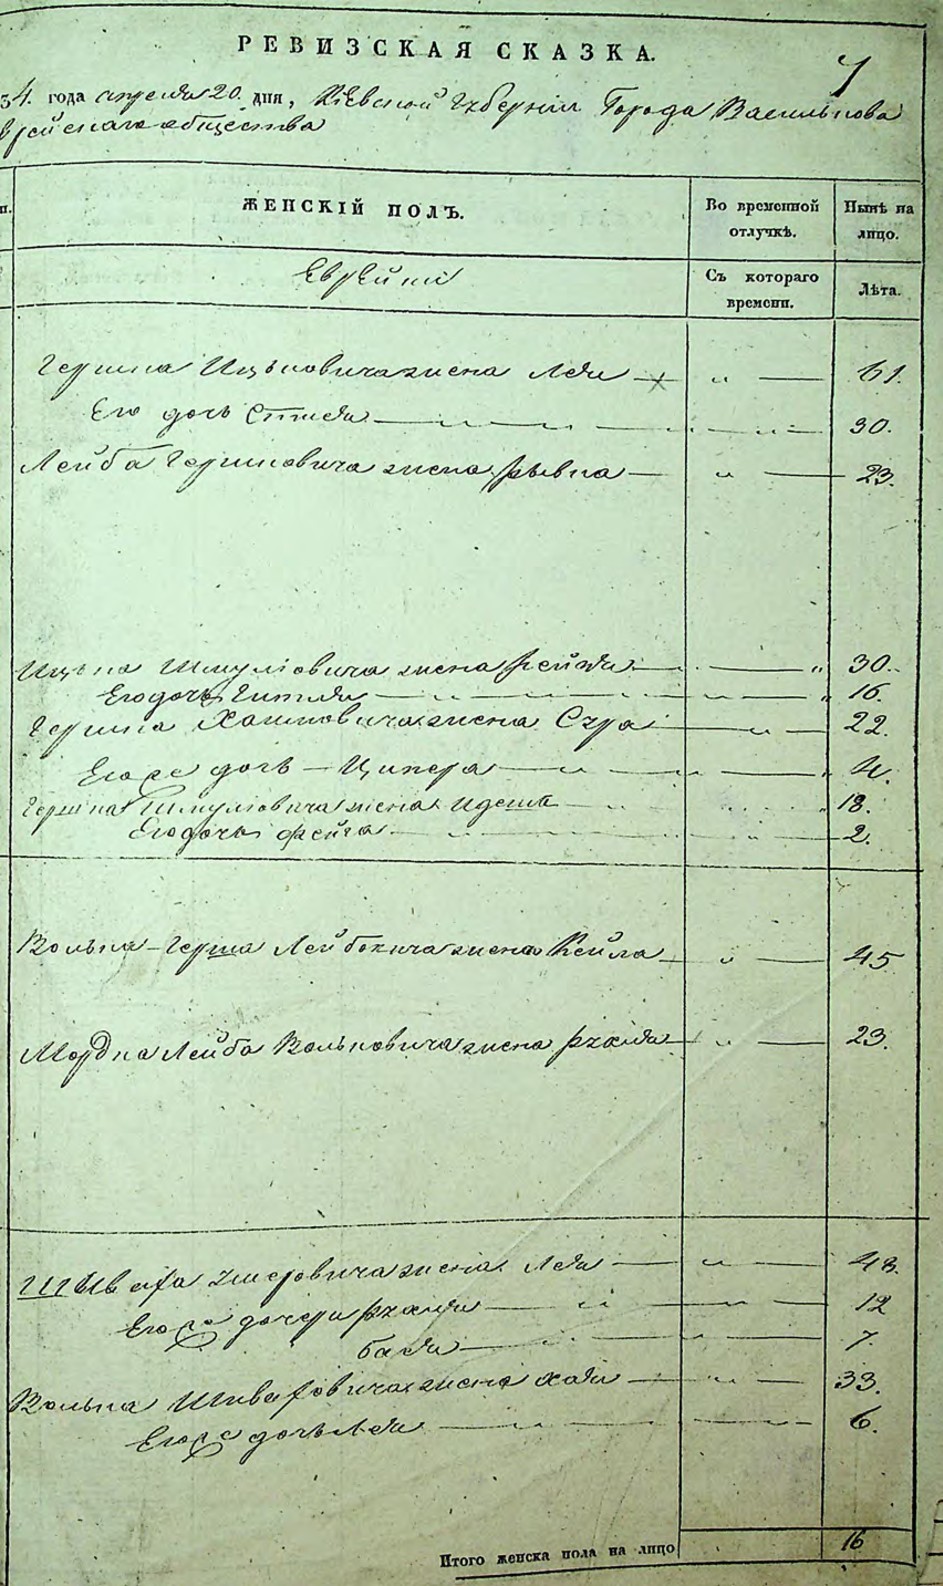 РЕВИЗСКАЯ СКАЗКА.
7
34. года апреля 20. дня, Кіевской Губерніи Города Василькова
Еврейскаго общества
п.
ЖЕНСКІЙ ПОЛЪ.
Во временной отлучкѣ.
Нынѣ на лицо.
Еврейки
Съ котораго времени.
Лѣта.
Гершка Ицьковича жена Лея — x " — 61.
Его дочь Стися — " — 30.
Лейба Гершковича жена Рывка — " — 23.
Ицька Шмуліовича жена Рейзя — " 30.
Его дочь Гитля — " — 16.
Гершка Хаимовича жена Сура — " — 22.
Его же дочь — Ципера — " — 4.
Гершка Шмуліовича жена Идеса — " 18.
Его дочь Фейга — " — 2.
Волька-Герша Лейбовича жена Кейла — " — 45
Мордка Лейба Вольковича жена Рухля — " — 23.
Лея — " — 48.
Его же дочери Рухля — " — 12
Бася — " — 7.
Волька жена Хая — " — 33.
Его же дочь Лея — " — 6.
Итого женска пола на лицо 16